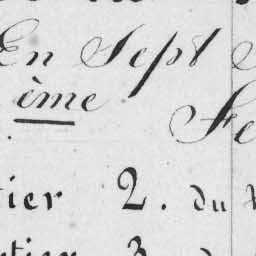 En Sept
ème Fe
tier 2. du
rtier 3. d